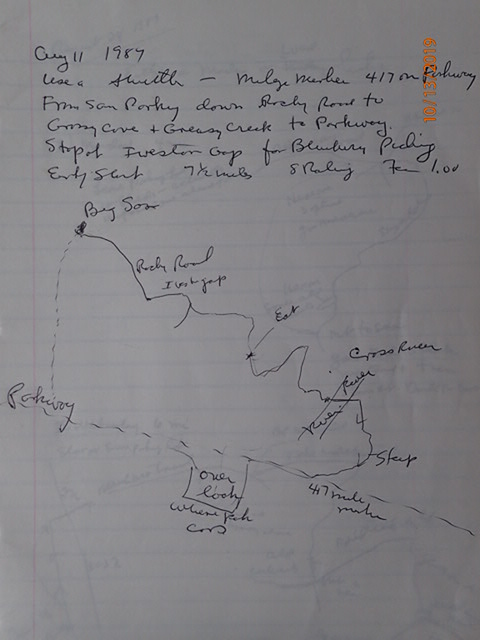 Aug 11 1987
Use a shuttle - Milege Marker 417 on Parkway
From Sam Parking down Rocky Road to
Grassy Cove + Greasy Creek to Parkway.
Stop at Ivestor Gap for Blueberry Picking
Early Start 7½ miles 5 Rating Fee 1.00
10/13/2019
Big Sam
Rocky Road
Ivest gap
Eat
Cross River
River
River
Parkway
Steep
over
look
where park
cars
417 mile
marker